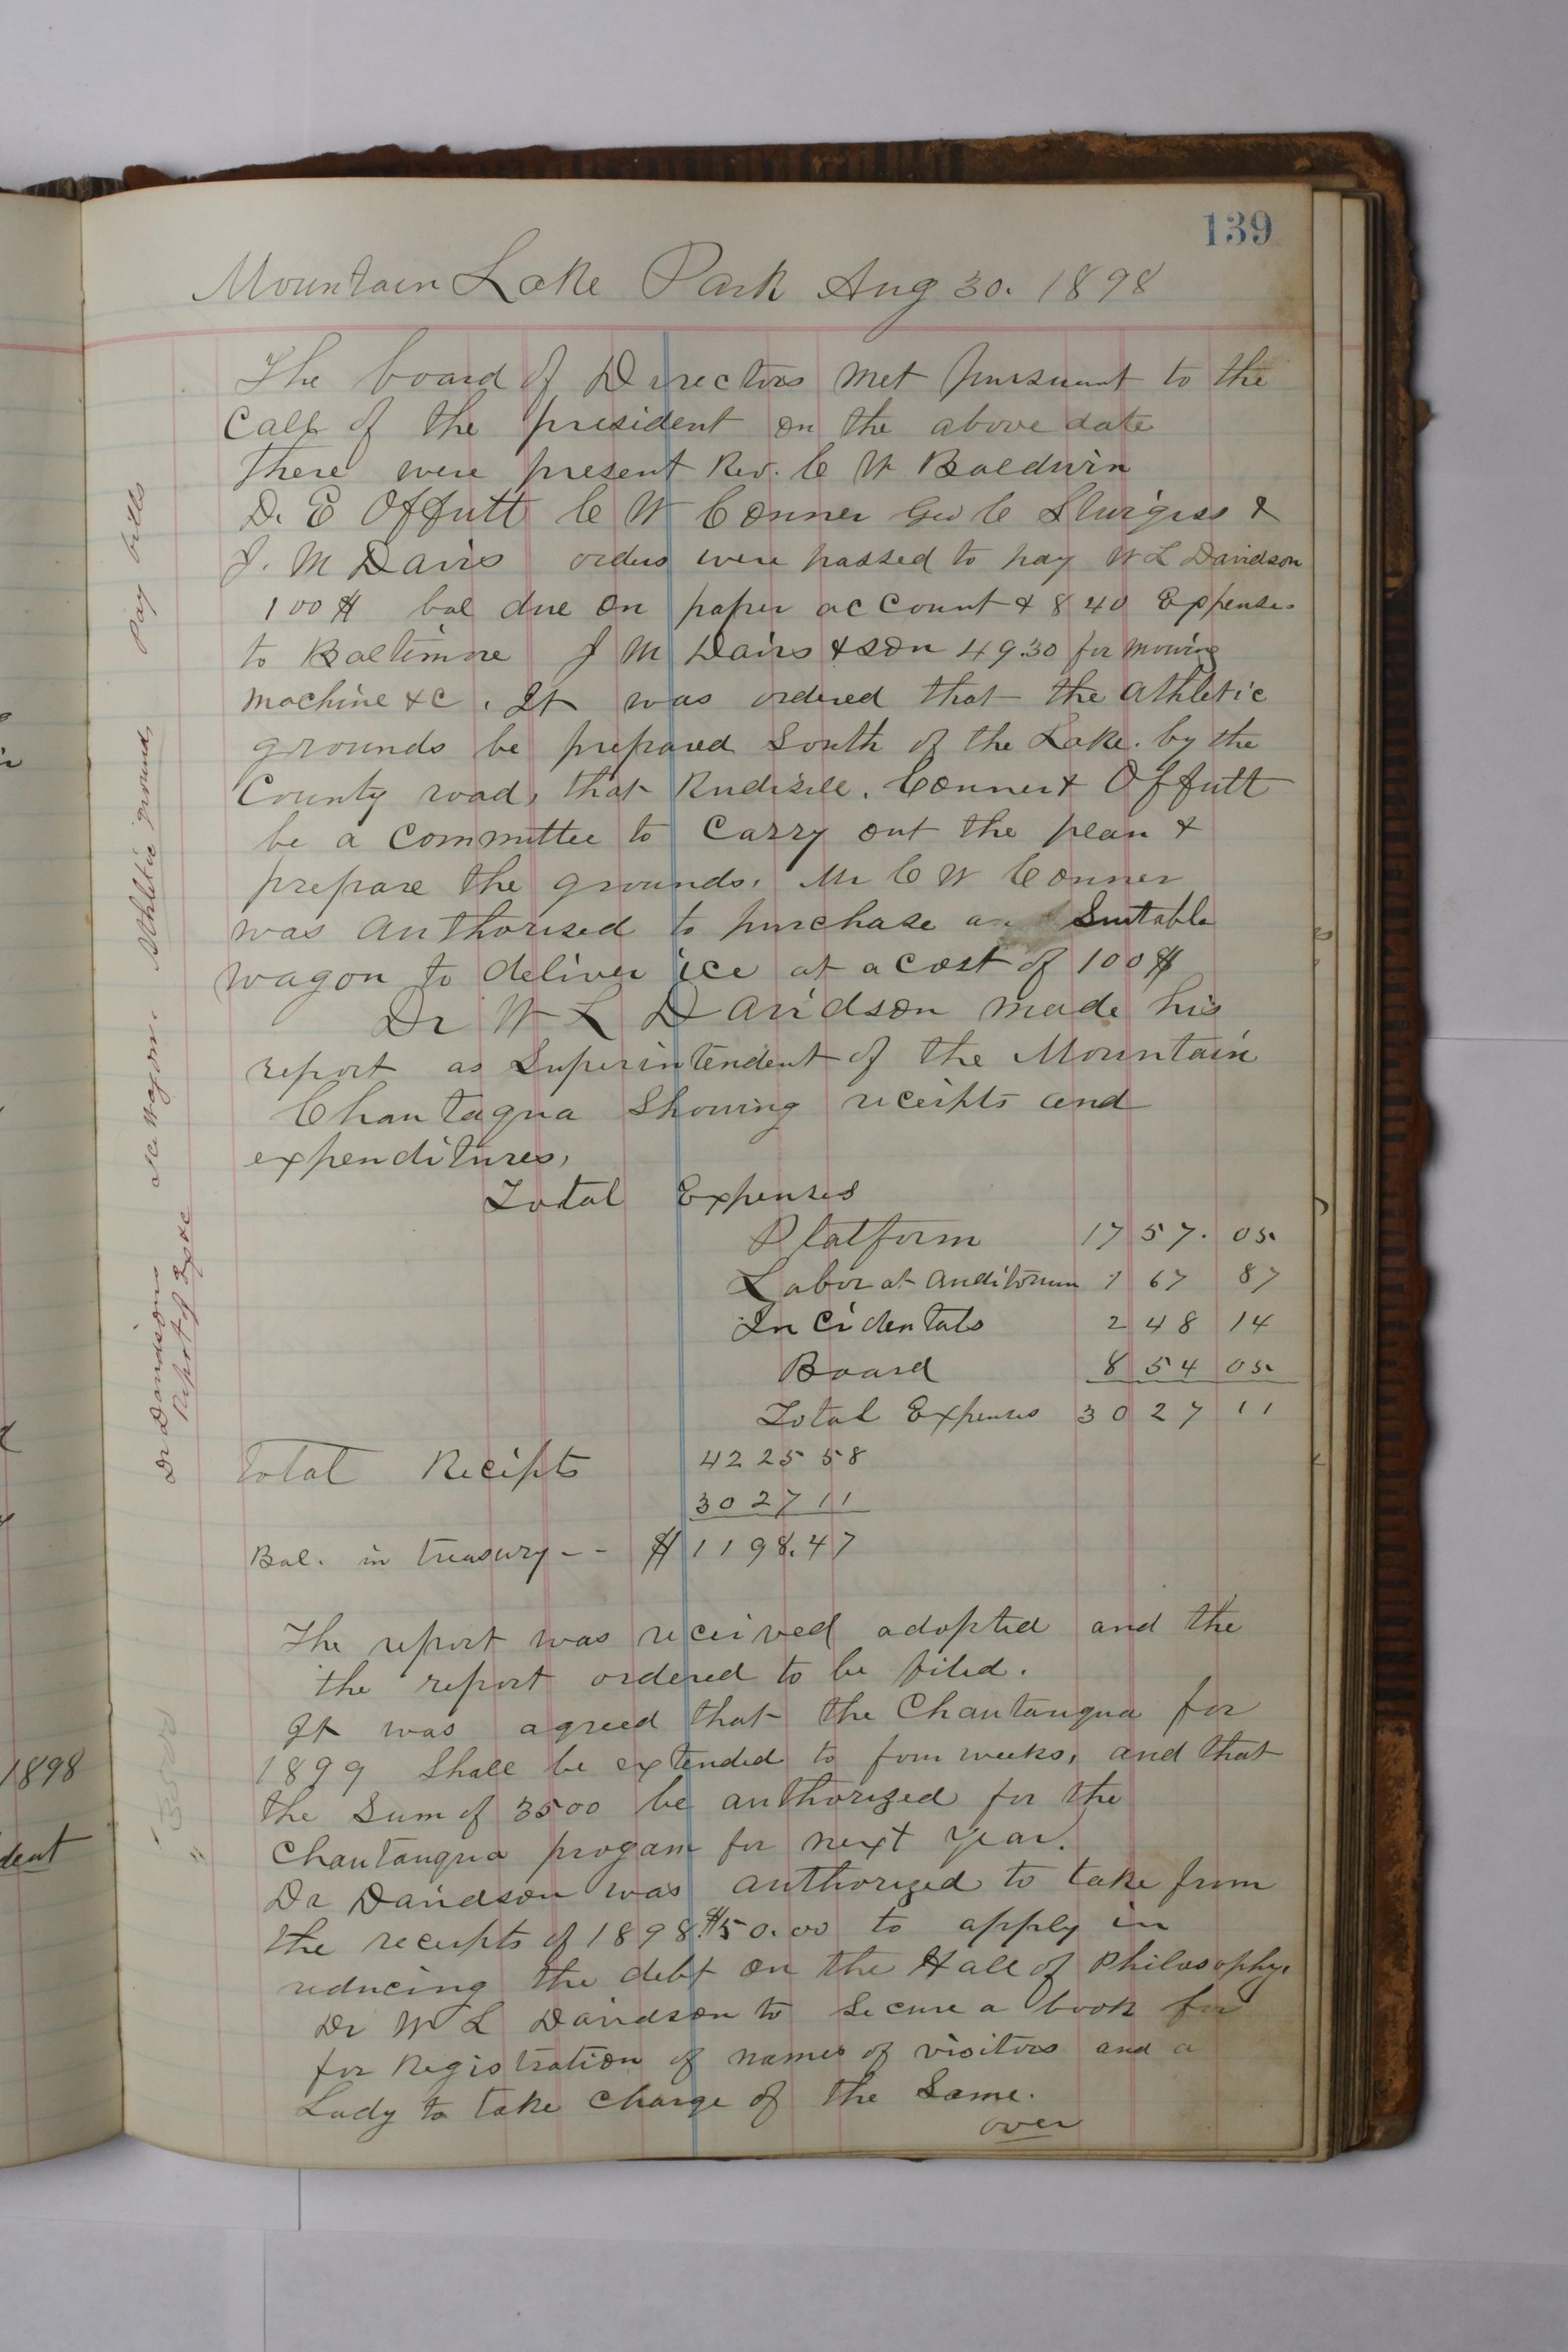 139
Mountain Lake Park Aug 30. 1898
The board of Directors met pursuant to the
Call of the president on the above date
there were present Rev. C W Baldwin
D. E Offutt C W Conner Geo C Sturgiss &
J. M Davis orders were passed to pay W L Davidson
100 $ bal due on paper account & 8 40 Expenses
to Baltimore J M Davis & son 49.30 for mowing
machine &c. It was ordered that the Athletic
grounds be prepared South of the Lake. by the
County road, that Rudisill. Conner & Offutt
be a Committee to Carry out the plan &
prepare the grounds. Mr C W Conner
was authorised to purchase a Suitable
wagon to deliver ice at a Cost of 100 $
Dr W L Davidson made his
report as Superintendent of the Mountain
Chautaqua Showing receipts and
expenditures,
Total Expenses
Platform 1757. 05.
Labor at Auditorium 167 87
InCidentals 248 14
Board 854 05.
Total Expenses 3027 11
Total Recipts 4225 58
3027 11
Bal. in treasury - - $ 1198.47
The report was received adopted and the
the report ordered to be filed.
It was agreed that the Chautauqua for
1899 Shall be extended to four weeks, and that
the Sum of 3500 be authorized for the
Chautauqua progam for next year.
Dr Davidson was authorized to take from
the receipts of 1898. $50.00 to apply in
reducing the debt on the Hall of Philosophy.
Dr W L Davidson to Secure a book for
for Registration of names of visitors and a
Lady to take Charge of the Same.
over
Pay bills
Athletic grounds
Ice Wagon.
Dr Davidsons
Report of Ex &c
3500
1898
dent